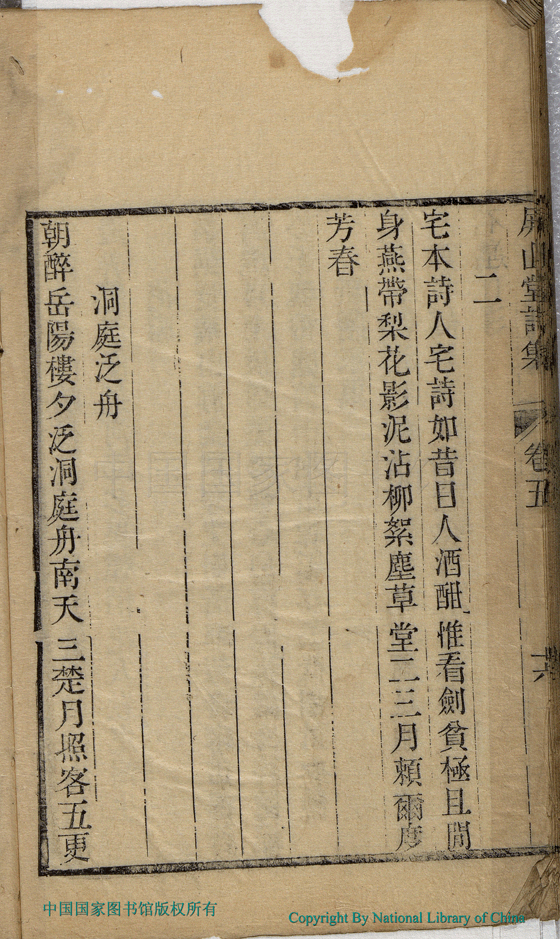 屏山堂詩集 卷五
二
宅本詩人宅詩如昔日人酒酣惟看劍貧極且閒
身燕帶梨花影泥沾柳絮塵草堂二三月頼爾度
芳春
洞庭泛舟
朝醉岳陽樓夕泛洞庭舟南天三楚月照客五更
中国国家图书馆版权所有
Copyright By National Library of China